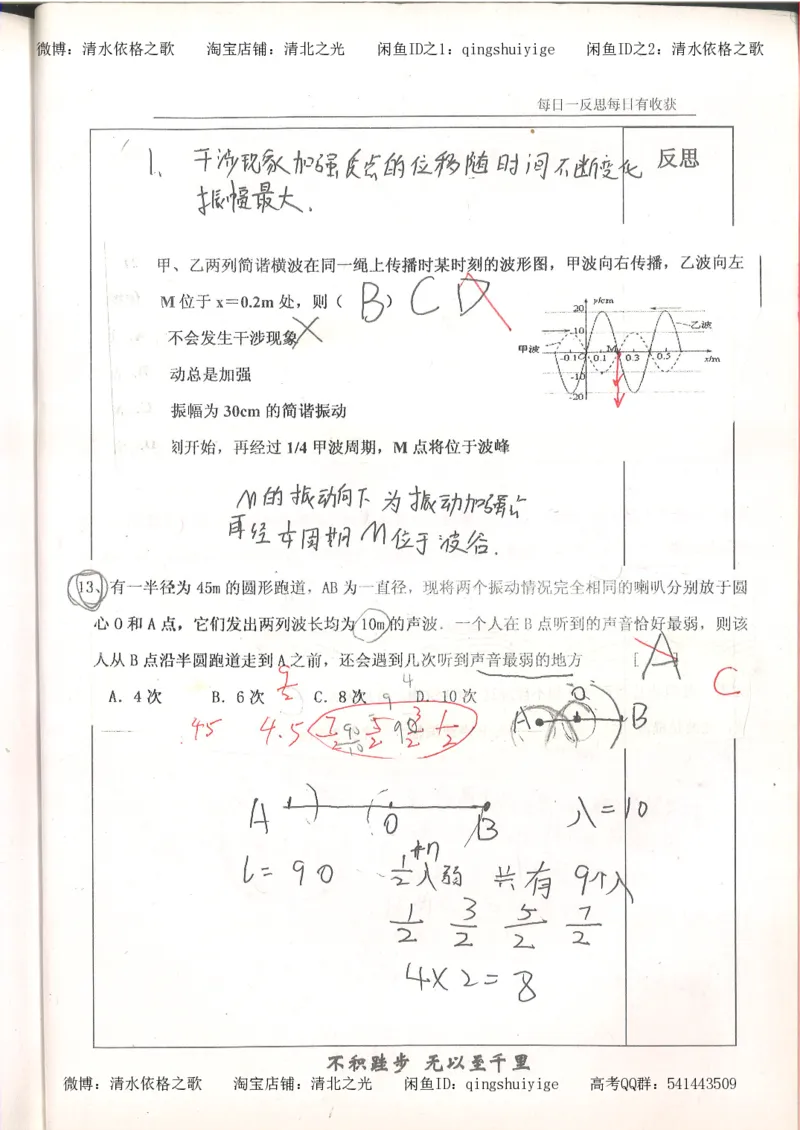 微博：清水依格之歌 淘宝店铺：清北之光 闲鱼ID之1：qingshuiyige 闲鱼ID之2：清水依格之歌
每日一反思每日有收获
1、干涉现象加强质点的位移随时间不断变化 反思
振幅最大.
甲、乙两列简谐横波在同一绳上传播时某时刻的波形图，甲波向右传播，乙波向左
M位于x＝0.2m处，则（ B ）C D
不会发生干涉现象
动总是加强
振幅为30cm的简谐振动
刻开始，再经过1/4甲波周期，M点将位于波峰
y/cm
20
10
乙波
甲波
-0.1 0 0.1 M 0.3 0.5 x/m
-10
-20
M的振动向下 为振动加强
再经 周期 M位于波谷.
13、有一半径为45m的圆形跑道，AB为一直径，现将两个振动情况完全相同的喇叭分别放于圆
心O和A点，它们发出两列波长均为10m的声波．一个人在B点听到的声音恰好最弱，则该
人从B点沿半圆跑道走到A之前，还会遇到几次听到声音最弱的地方 [ A ]
C
A．4次 B．6次 C．8次 D．10次
9/2
45 4.5 7/2 5/2 3/2 1/2
A O B
A O B λ=10
L=90 1/2+n λ弱 共有9个λ
1/2 3/2 5/2 7/2
4×2=8
不积跬步 无以至千里
微博：清水依格之歌 淘宝店铺：清北之光 闲鱼ID：qingshuiyige 高考QQ群：541443509